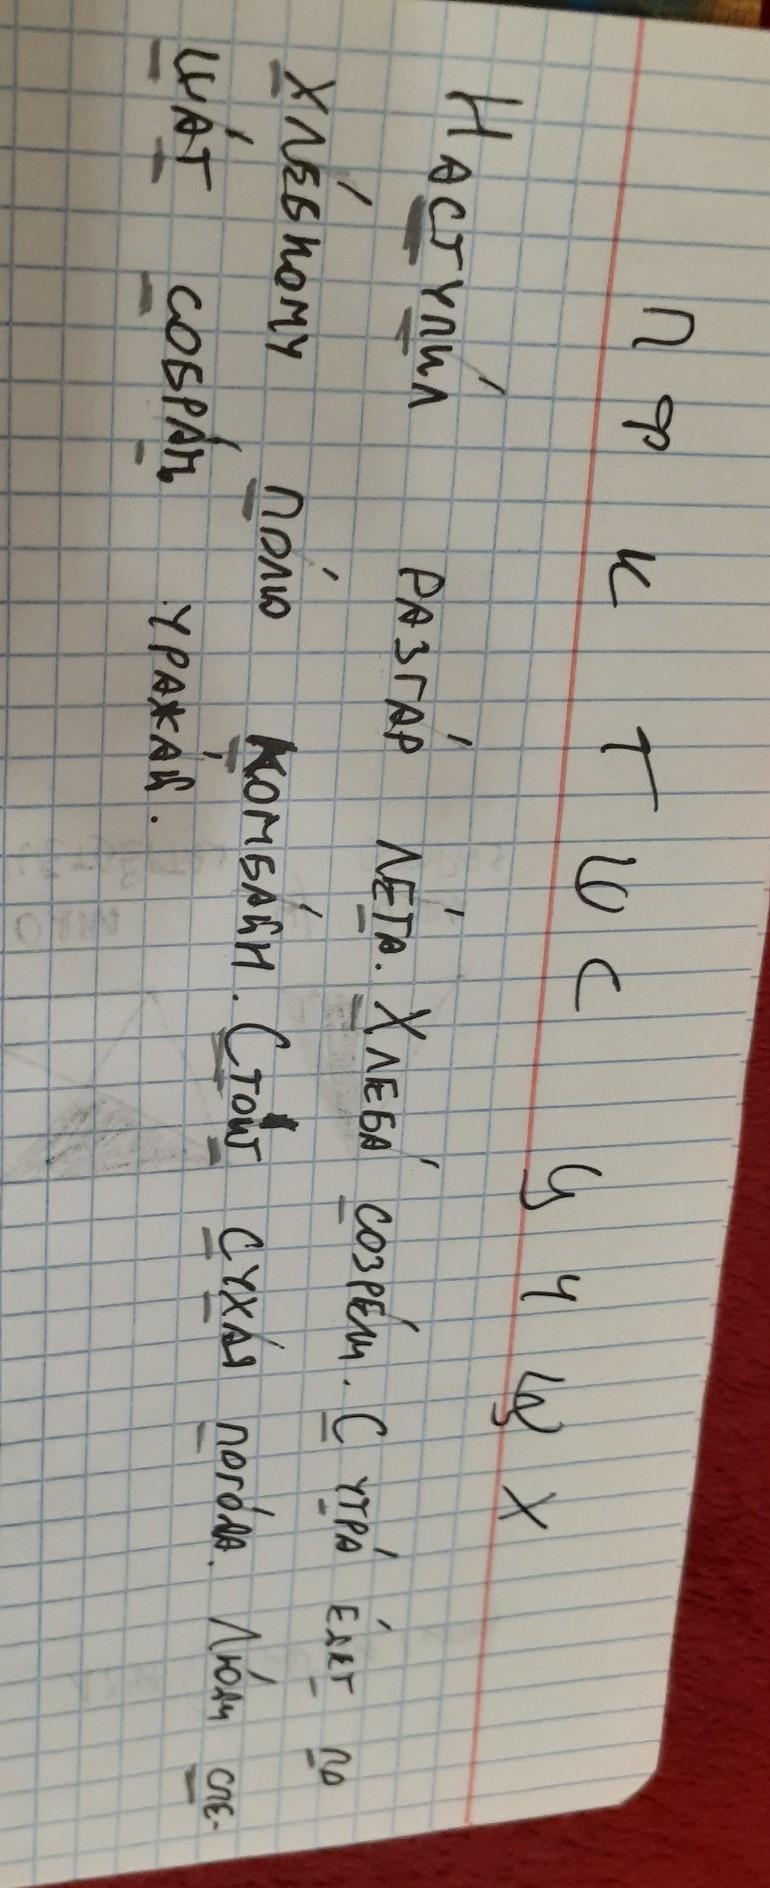 П Ф К Т Ш С Ц Ч Щ Х
НАСТУПИ́Л РАЗГА́Р ЛЕ́ТА. ХЛЕБА́ СОЗРЕ́ЛИ. С УТРА́ Е́ДЕТ ПО
ХЛЕ́БНОМУ ПО́ЛЮ КОМБА́ЙН. СТОИ́Т СУХА́Я ПОГО́ДА. ЛЮ́ДИ СПЕ-
ША́Т СОБРА́ТЬ УРАЖА́Й.